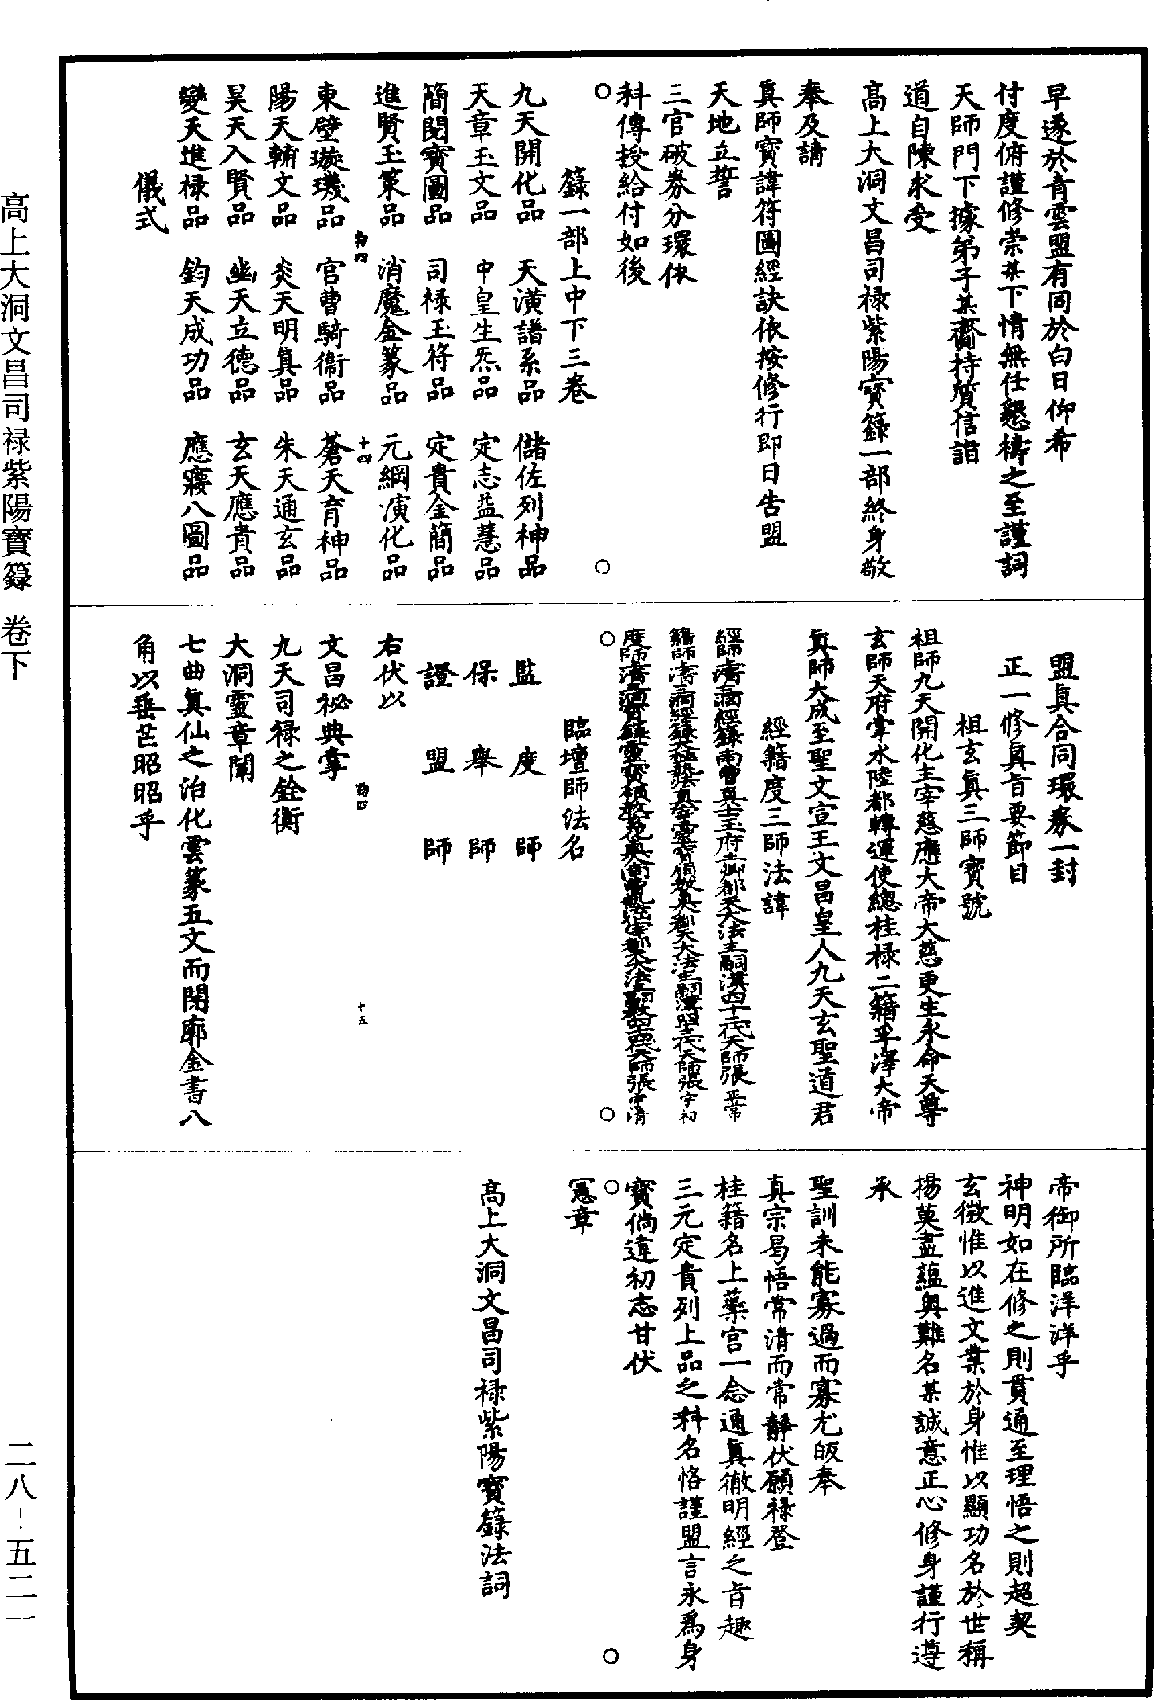 早遂於青雲盟有同於白日仰希
付度俯謹修崇某下情無任懇禱之至謹詞
天師門下據弟子某齎持質信詣
道自陳求受
高上大洞文昌司祿紫陽寶籙一部終身敬
奉及請
真師寶諱符圖經訣依按修行即日告盟
天地立誓
三官破券分環依
科傳授給付如後
○ ○
籙一部上中下三卷
九天開化品 天潢譜系品 儲佐列神品
天章玉文品 中皇生炁品 定志益慧品
簡閱寶圖品 司祿玉符品 定貴金簡品
進賢玉策品 消魔金篆品 元綱演化品
十四
東壁璇璣品 官曹騎衞品 蒼天育神品
陽天輔文品 炎天明真品 朱天通玄品
昊天入賢品 幽天立德品 玄天應貴品
變天進祿品 鈞天成功品 應寢八圖品
儀式
盟真合同環券一封
正一修真旨要節目
祖玄真三師寶號
祖師九天開化主宰慈應大帝大慈更生永命天尊
玄師天府掌水陸都轉運使總桂祿二籍孚澤大帝
真師大成至聖文宣王文昌皇人九天玄聖道君
經籍度三師法諱
經師 天師張
籍師 天師張宇初
度師 天師張宇清
○ ○
臨壇師法名
監度師
保舉師
證盟師
右伏以
文昌祕典掌
十五
九天司祿之銓衡
大洞靈章闡
七曲真仙之治化雲篆五文而開廓金書八
角以垂芒昭昭乎
帝御所臨洋洋乎
神明如在修之則貫通至理悟之則超契
玄徵惟以進文業於身惟以顯功名於世稱
揚莫盡蘊奧難名某誠意正心修身謹行遵
承
聖訓未能寡過而寡尤皈奉
真宗曷悟常清而常靜伏願祿登
桂籍名上蘂宮一念通真徹明經之旨趣
三元定貴列上品之科名恪謹盟言永為身
寶倘違初志甘伏
○ ○
憲章
高上大洞文昌司祿紫陽寶籙法詞
高上大洞文昌司祿紫陽寶籙 卷下
二八-五二一